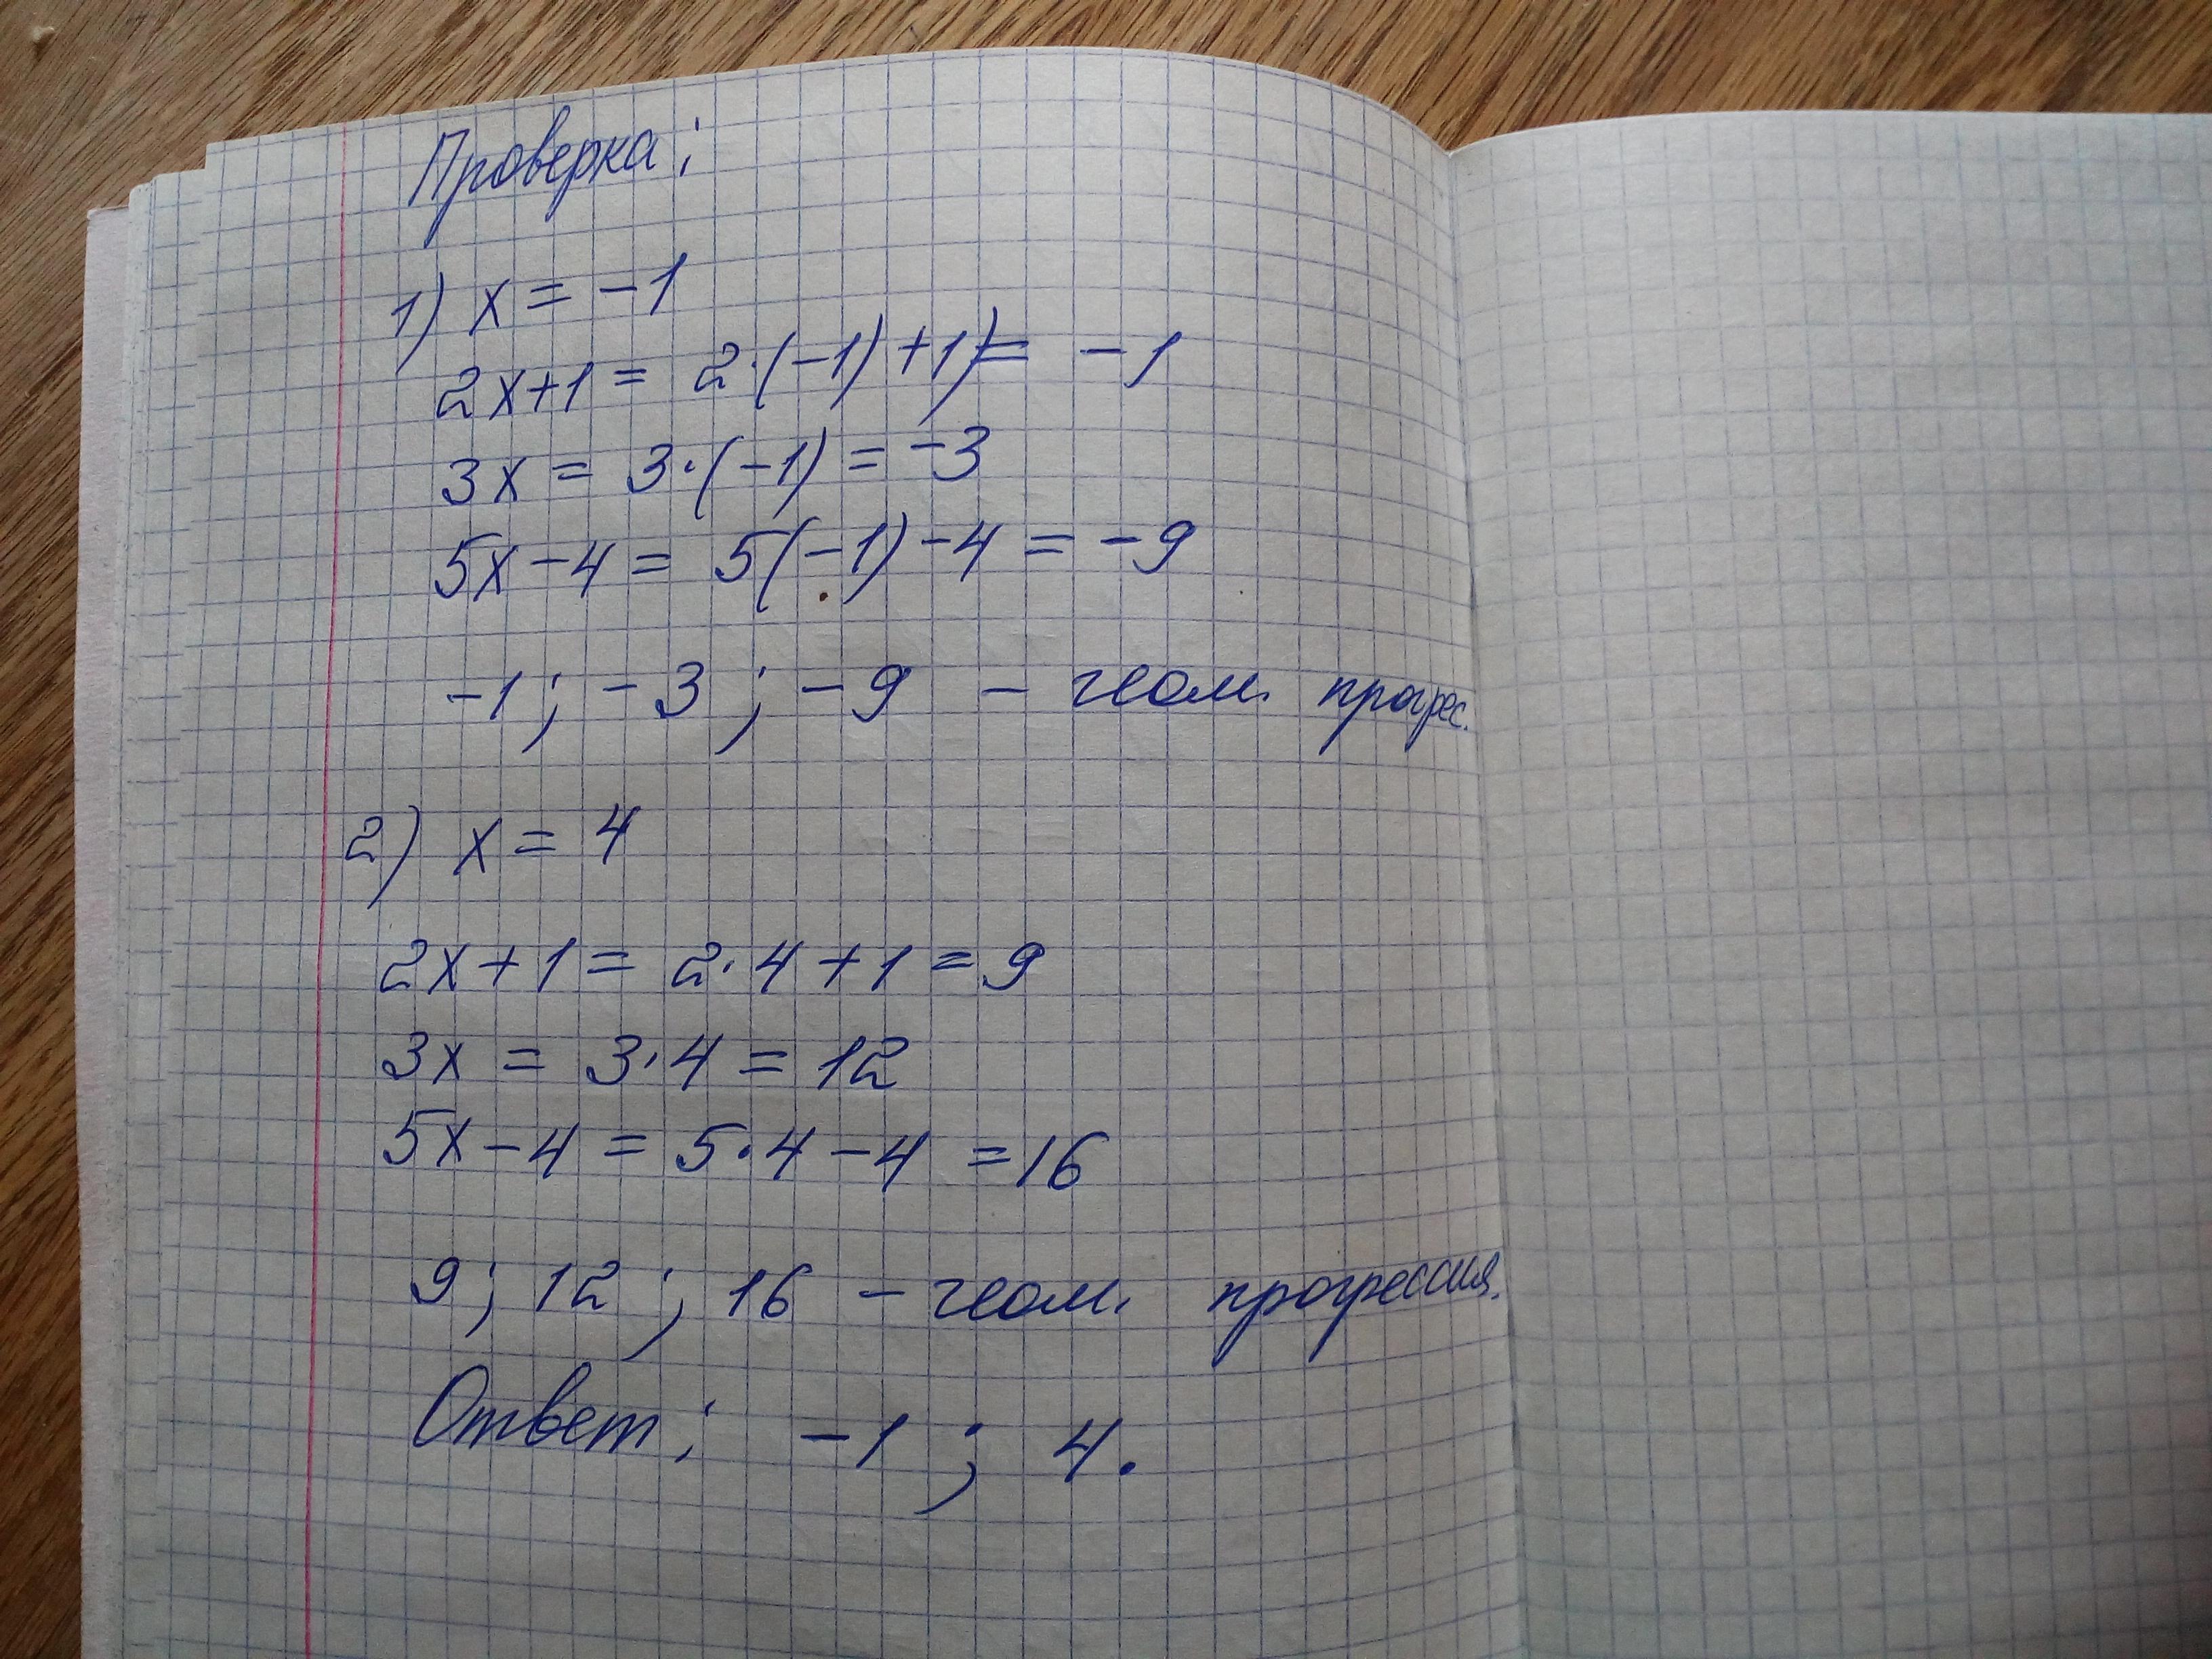 Проверка:
1) x = -1
2x+1 = 2·(-1)+1)= -1
3x = 3·(-1) = -3
5x-4 = 5(-1)-4 = -9
-1; -3; -9 - геом. прогрес.
2) x = 4
2x+1 = 2·4+1 = 9
3x = 3·4 = 12
5x-4 = 5·4-4 =16
9; 12; 16 - геом. прогрессия.
Ответ: -1; 4.